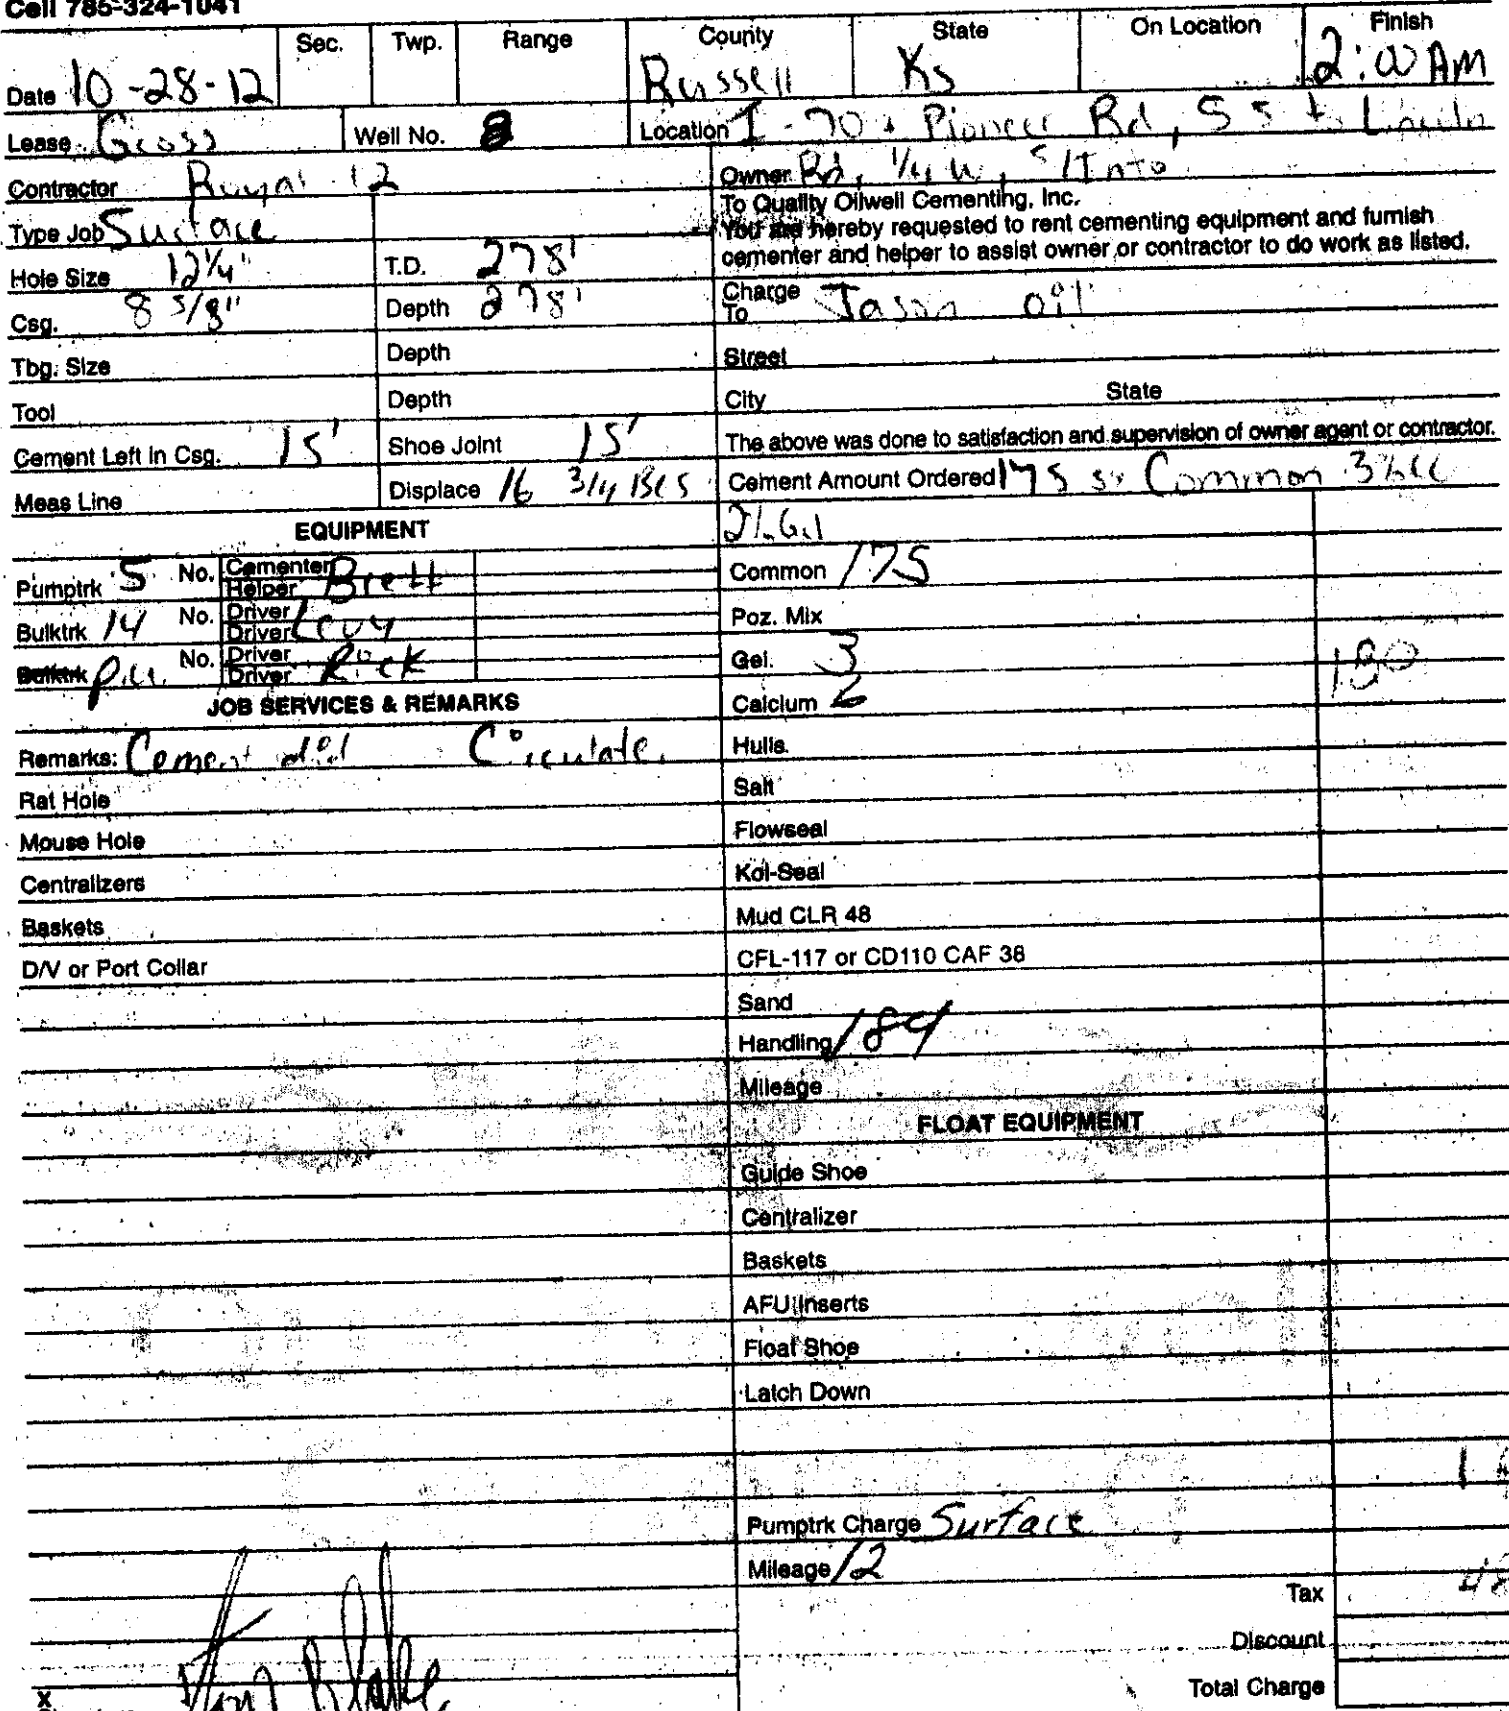 Cell 785-324-1041
Sec. Twp. Range County State On Location Finish
Date 10-28-12 Russell Ks 2:00 AM
Lease Gross Well No. Location I-70 + Pioneer Rd, 5 S to Lincoln
Contractor Royal 12 Owner Rd, 1/4 W, S/Into
To Quality Oilwell Cementing, Inc.
You are hereby requested to rent cementing equipment and furnish
cementer and helper to assist owner or contractor to do work as listed.
Type Job Surface
Hole Size 12 1/4" T.D. 278'
Csg. 8 5/8" Depth 278' Charge To Jason Oil
Tbg. Size Depth Street
Tool Depth City State
Cement Left in Csg. 15' Shoe Joint 15' The above was done to satisfaction and supervision of owner agent or contractor.
Meas Line Displace 16 3/4 BLS Cement Amount Ordered 175 sx Common 3%CC
EQUIPMENT 2% Gel
Pumptrk 5 No. Cementer Helper Brett Common 175
Bulktrk 14 No. Driver Driver Levy Poz. Mix
Bulktrk p.u. No. Driver Driver Rick Gel. 3 180
JOB SERVICES & REMARKS Calcium 6
Remarks: Cement did Circulate. Hulls
Rat Hole Salt
Mouse Hole Flowseal
Centralizers Kol-Seal
Baskets Mud CLR 48
D/V or Port Collar CFL-117 or CD110 CAF 38
Sand
Handling 184
Mileage
FLOAT EQUIPMENT
Guide Shoe
Centralizer
Baskets
AFU Inserts
Float Shoe
Latch Down
Pumptrk Charge Surface
Mileage 12
Tax 48
Discount
X Total Charge